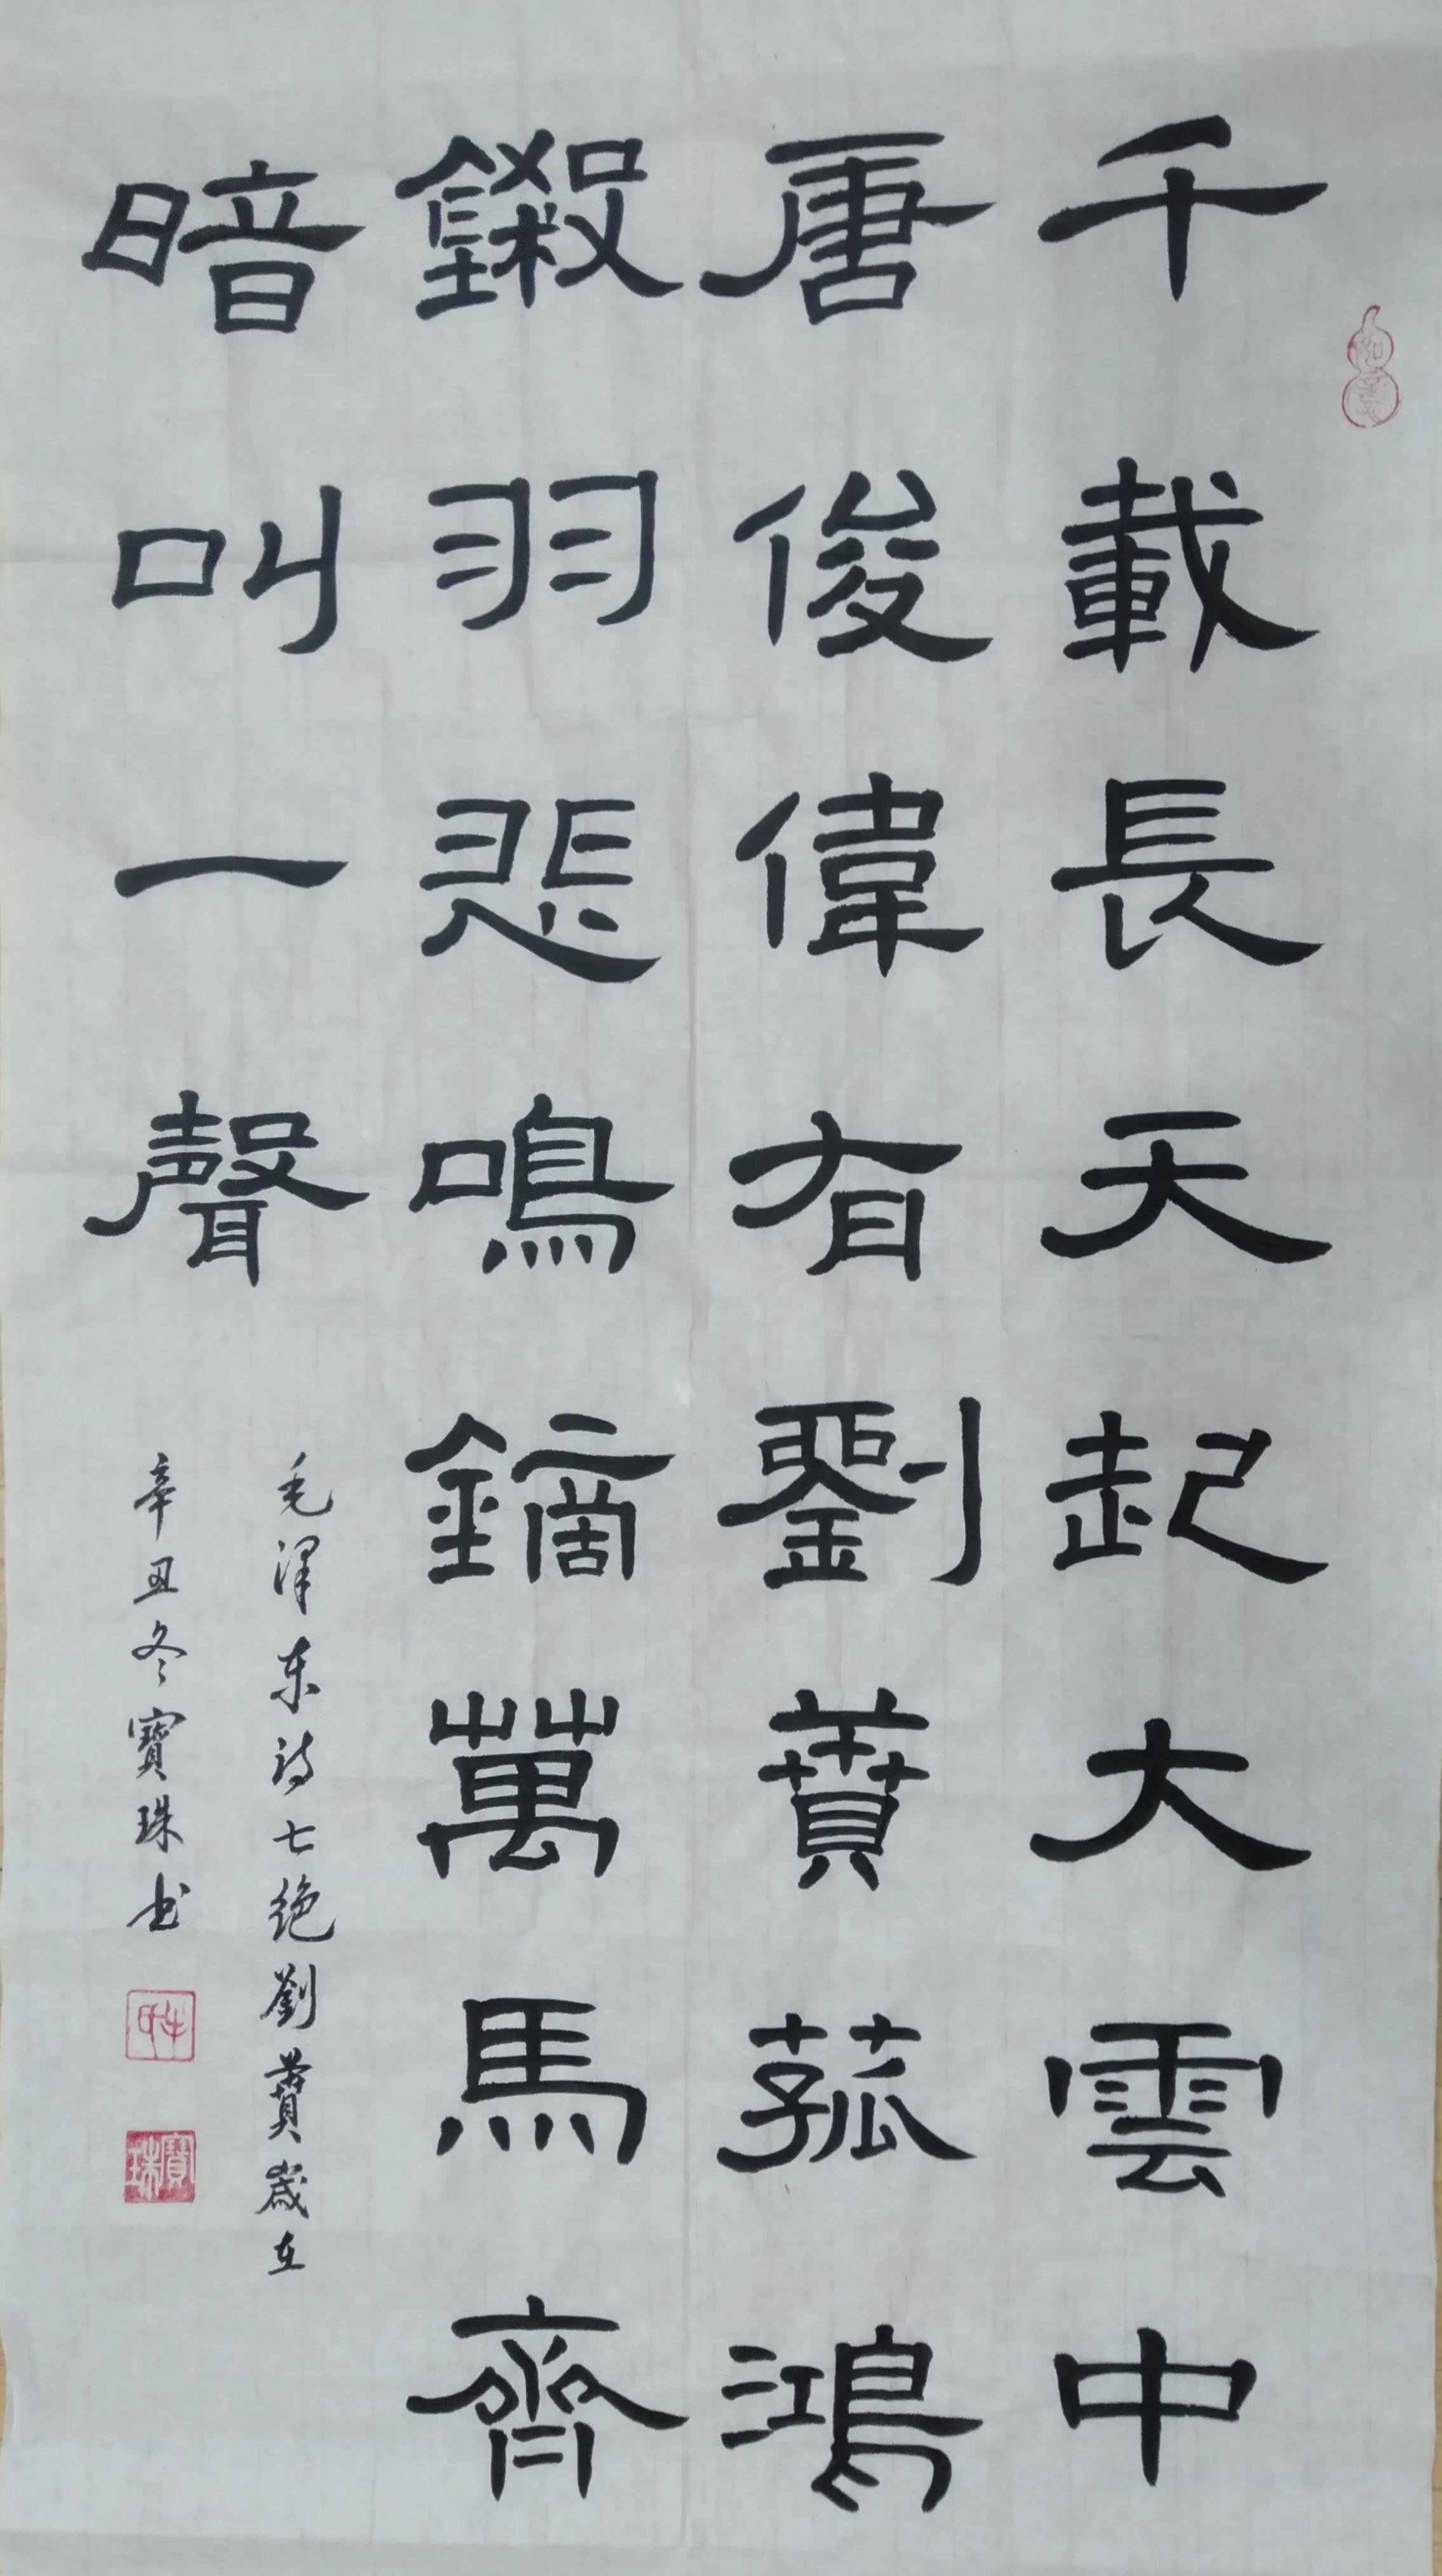 千載長天起大雲中
唐俊偉有劉蕡菰鴻
鎩羽悲鳴鏑萬馬齊
暗叫一聲
毛泽东诗七绝劉蕡歲在
辛丑冬寶珠书
寶珠